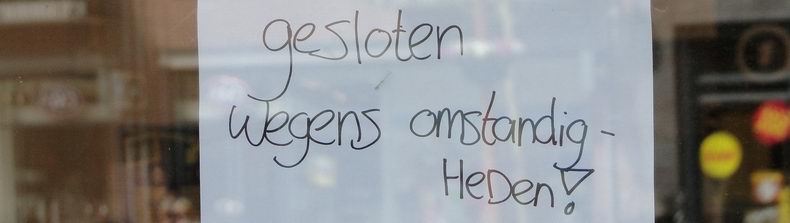 gesloten
wegens omstandig-
HeDen!